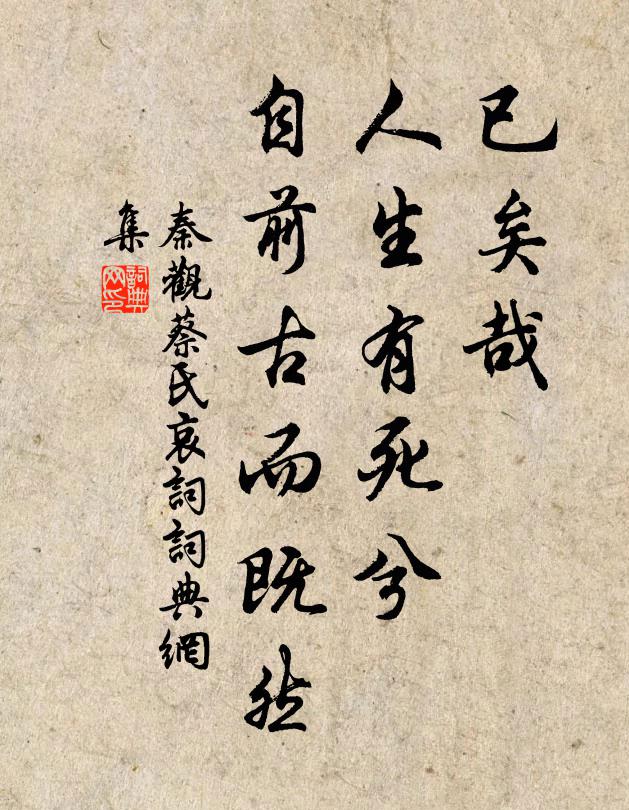 已矣哉
人生有死兮
自前古而既然
秦觀蔡氏哀詞詞典網
集
詞典网印